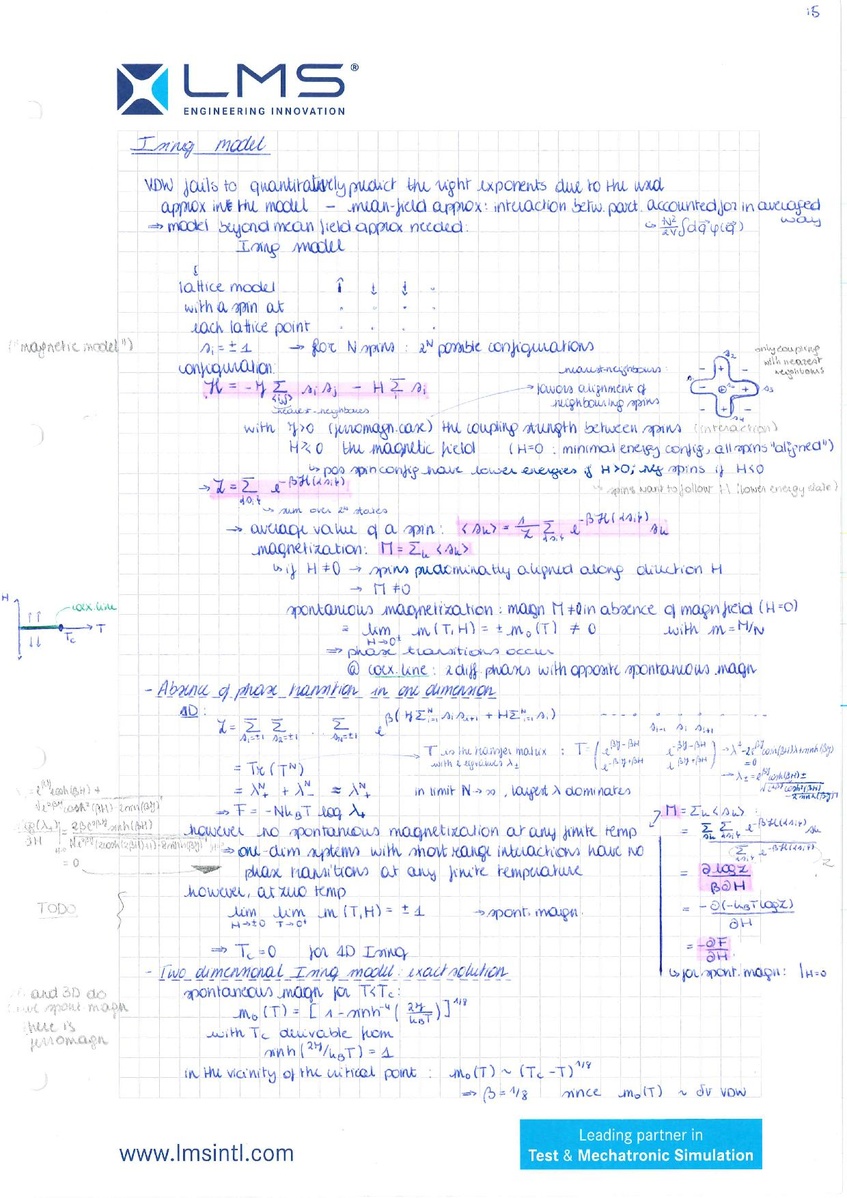 15
LMS®
ENGINEERING INNOVATION
Ising model
VDW fails to quantitatively predict the right exponents due to the used
approx in the model – mean-field approx: interaction betw. part. accounted for in averaged way
⇒ model beyond mean field approx needed:
↳ N²/2V ∫dq⃗ φ(q⃗)
Ising model
lattice model
with a spin at
each lattice point
("magnetic model")
s_i = ±1 → for N spins : 2^N possible configurations
configuration:
H = -J Σ_<ij> s_i s_j - H Σ_i s_i
nearest-neighbours
nearest-neighbours
→ favors alignment of
neighbouring spins
only coupling
with nearest
neighbours
with J>0 (ferromagn. case) the coupling strength between spins (interaction)
H≷0 the magnetic field (H=0 : minimal energy config, all spins "aligned")
↳ pos spin config have lower energies if H>0; neg spins if H<0
↳ spins want to follow H (lower energy state)
→ Z = Σ_{s_i} e^{-βH({s_i})}
↳ sum over 2^N states
→ average value of a spin: <s_k> = 1/Z Σ_{s_i} e^{-βH({s_i})} s_k
magnetization: M = Σ_k <s_k>
↳ if H≠0 → spins predominatly aligned along direction H
→ M≠0
H
coex. line
T_c
T
spontaneous magnetization : magn M≠0 in absence of magn field (H=0)
= lim_{H→0±} m(T,H) = ± m_0(T) ≠ 0 with m = M/N
⇒ phase transitions occur
@ coex. line : 2 diff. phases with opposite spontaneous magn
- Absence of phase transition in one dimension
1D:
Z = Σ_{s_1=±1} Σ_{s_2=±1} ... Σ_{s_N=±1} e^{β(J Σ_{i=1}^N s_i s_{i+1} + H Σ_{i=1}^N s_i)}
s_{i-1} s_i s_{i+1}
= Tr(T^N)
→ T is the transfer matrix :
with 2 eigenvalues λ±
= λ_+^N + λ_-^N ≈ λ_+^N in limit N→∞, largest λ dominates
⇒ F = -N k_B T log λ_+
however no spontaneous magnetization at any finite temp
⇒ one-dim systems with short range interactions have no
phase transitions at any finite temperature
= 0
M = Σ_k <s_k>
= ∂logZ/β∂H
= -∂(-k_B T log Z)/∂H
= -∂F/∂H
↳ for spont. magn: |_{H=0}
TODO
however, at zero temp
lim_{H→±0} lim_{T→0+} m(T,H) = ±1 → spont. magn.
⇒ T_c = 0 for 1D Ising
- Two dimensional Ising model : exact solution
and 3D do
spont magn
there is
ferromagn
spontaneous magn for T<T_c:
m_0(T) = [1 - sinh^{-4}(2J/k_B T)]^{1/8}
with T_c derivable from
sinh(2J/k_B T) = 1
in the vicinity of the critical point : m_0(T) ~ (T_c - T)^{1/8}
⇒ β = 1/8 since m_0(T) ~ δv VDW
www.lmsintl.com
Leading partner in
Test & Mechatronic Simulation